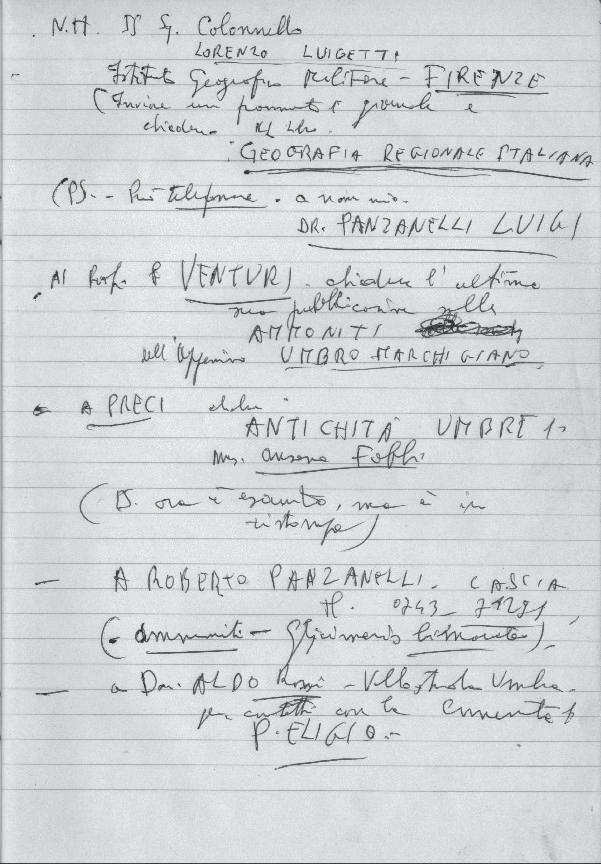 N.H. Il Sg. Colonnello
LORENZO LUIGETTI
Istituto Geografico Militare - FIRENZE
(Inviare un giornale e
chiedere
GEOGRAFIA REGIONALE ITALIANA
(PS. - Può telefonare. a nom mio.
DR. PANZANELLI LUIGI
Al Prof. F VENTURI chiedere l'ultima
sua pubblicazione sulle
AMMONITI
dell'Appennino UMBRO MARCHIGIANO.
- A PRECI
ANTICHITÀ UMBRE
Mns. Ansano Fabbi
(D. ora è esaurito, ma è in
ristampa)
- A ROBERTO PANZANELLI. CASCIA
tf. 0743-71291
(- ammoniti - Glicimeris bimaculata).
- a Don. ALDO Rossi - Villastrada Umbra.
per contatti con la Comunità
P. ELIGIO.-